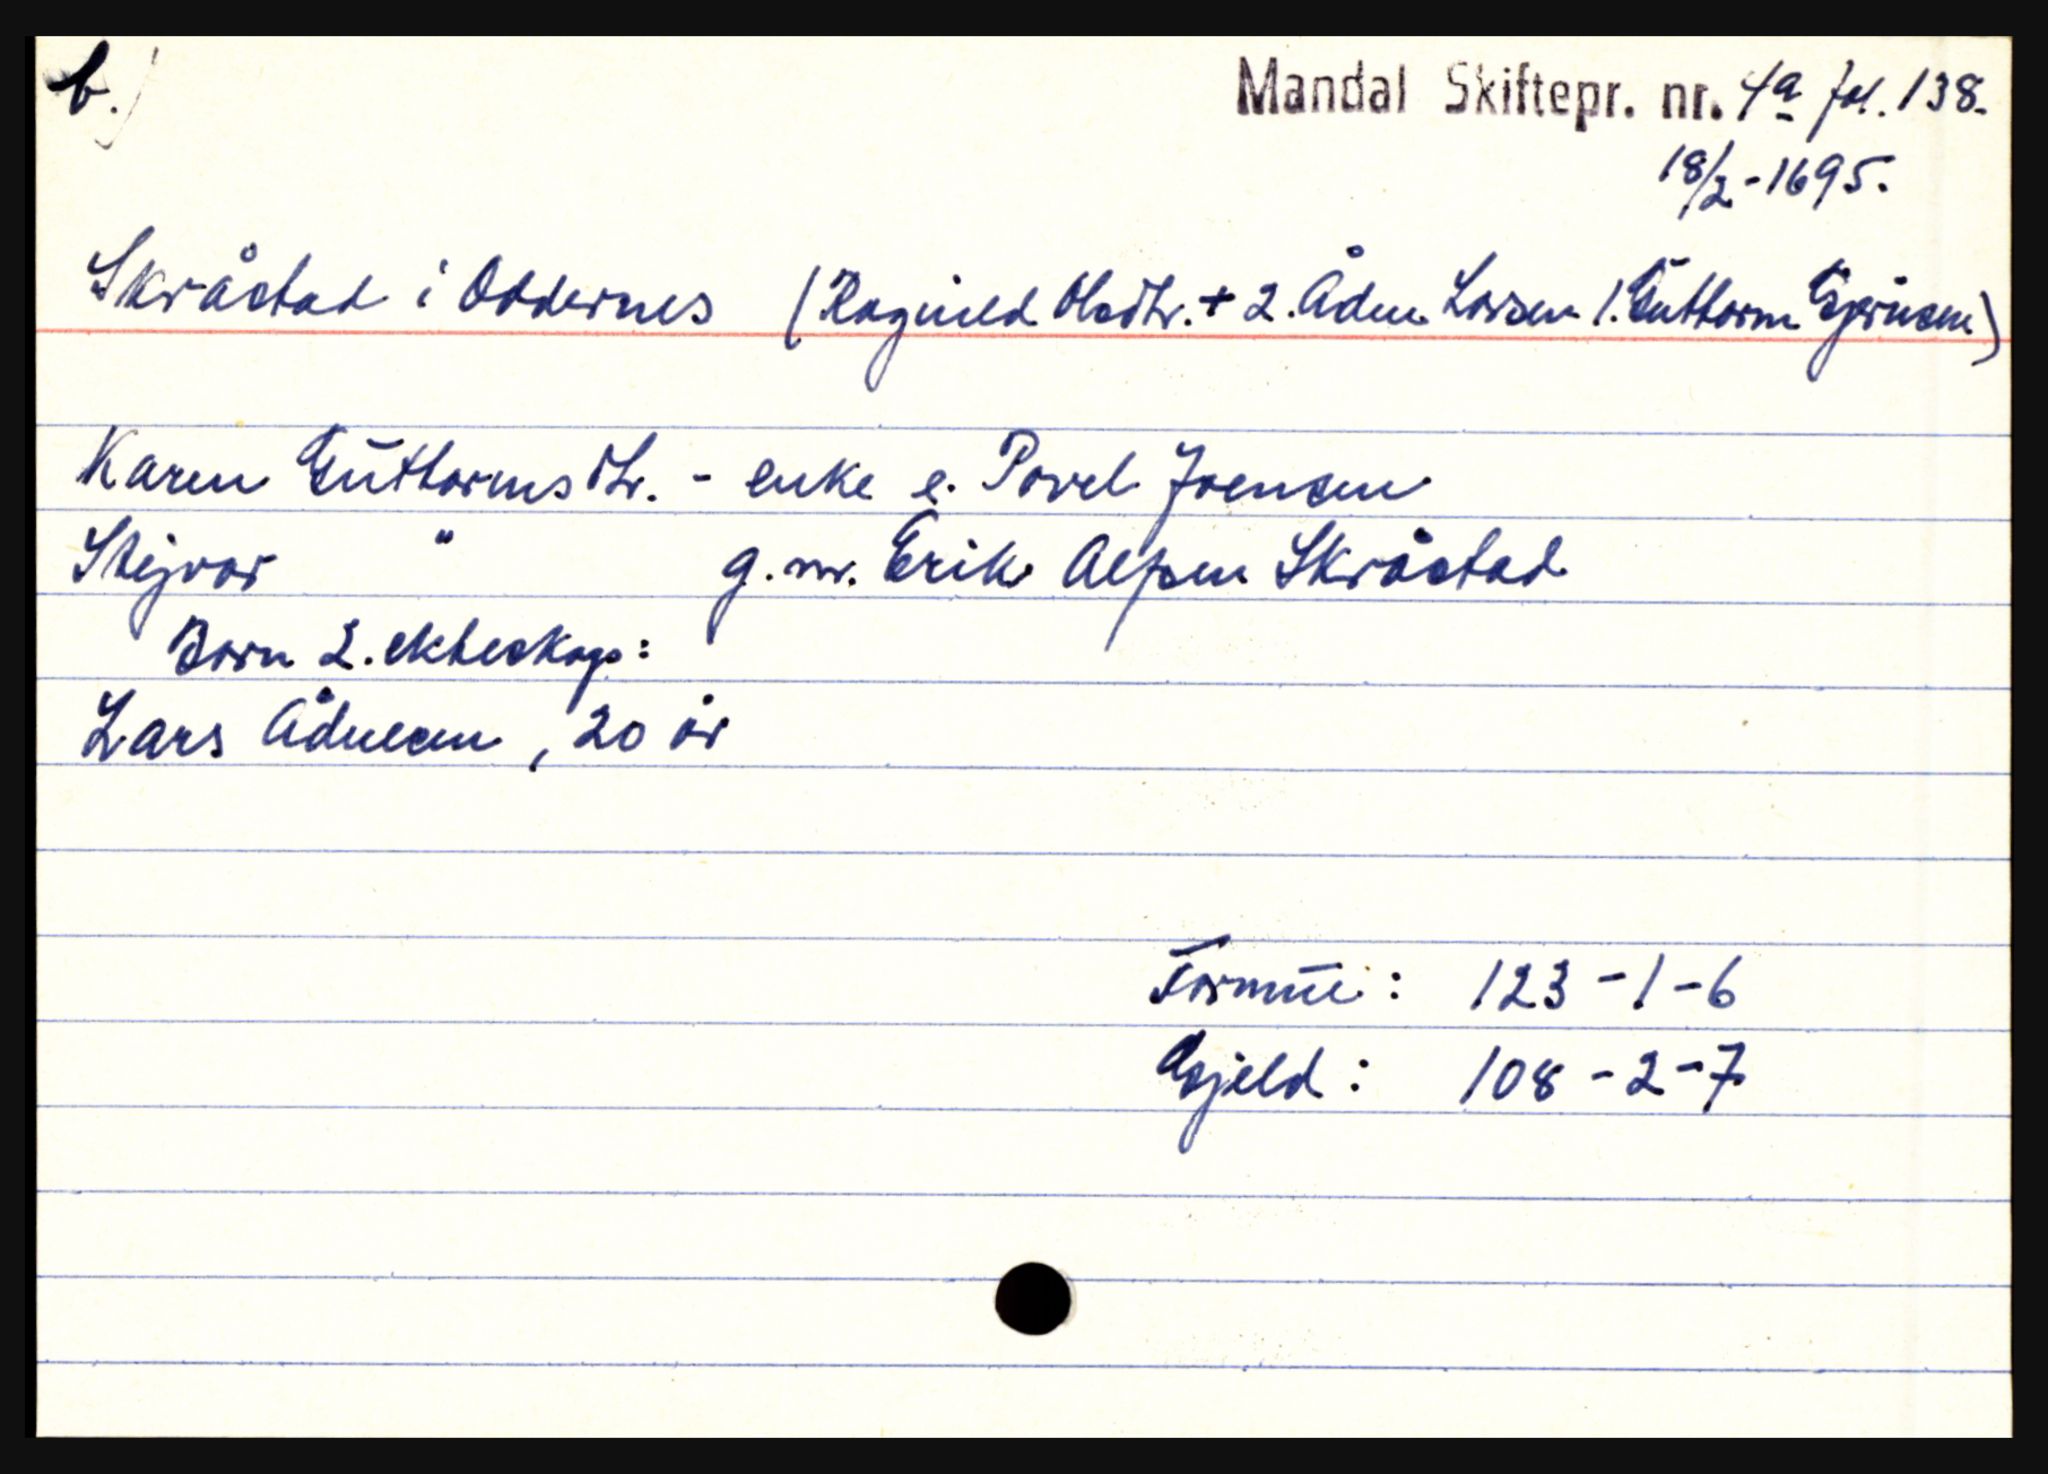 b.)
Mandal Skiftepr. nr. 4a fol. 138.
18/2-1695.
Skråstad i Oddernes (Ragnild Olsdtr. + 2. Ådne Larsen 1. Guttorm)
Karen Guttormsdtr. - enke e. Povel Joensen
Stejvor " g. m. Erik Alfsen Skråstad
Born 2. ekteskap:
Lars Ådnesen, 20 år
Formue: 123-1-6
Gjeld: 108-2-7